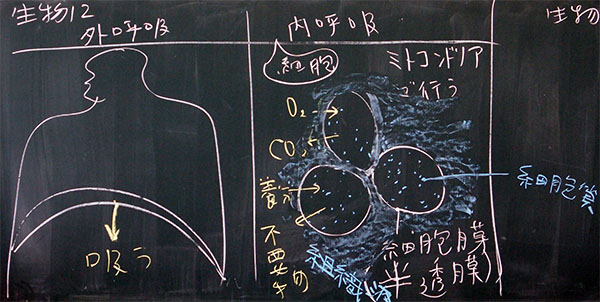 生物12
外呼吸
吸う
内呼吸
細胞
ミトコンドリア
で行う
O₂
CO₂
養分
不要物
細胞質
細胞膜
半透膜
組織液
生物